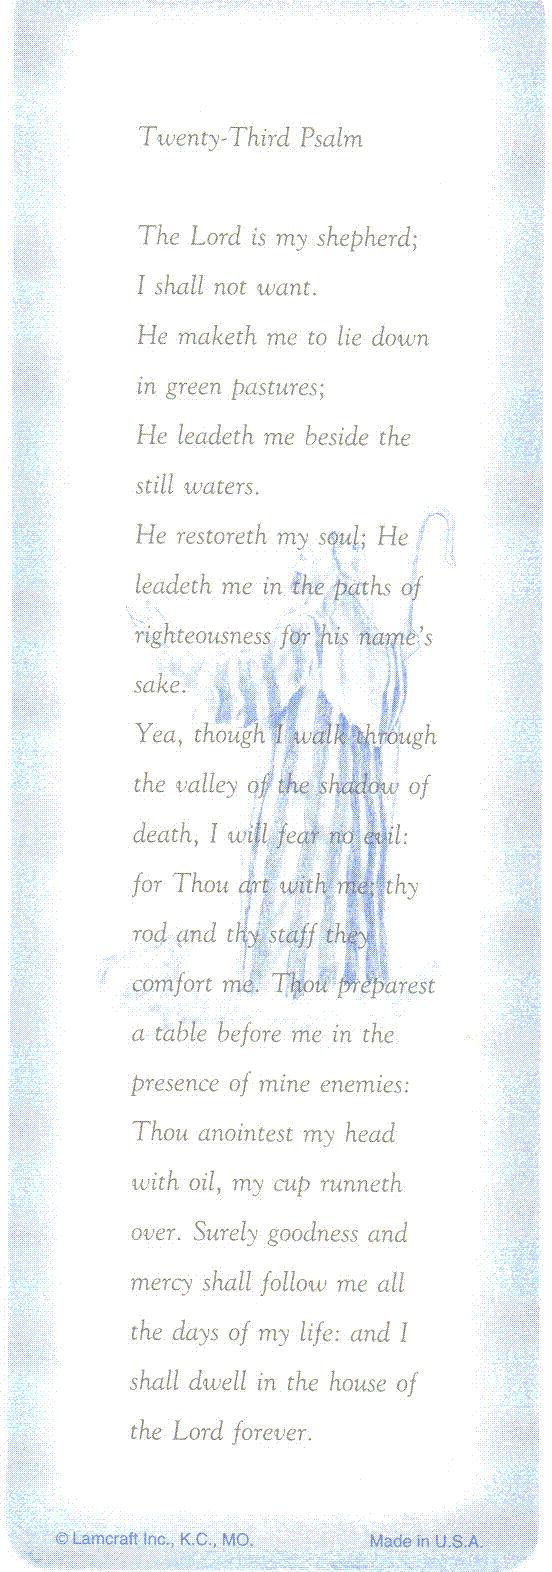 Twenty-Third Psalm
The Lord is my shepherd;
I shall not want.
He maketh me to lie down
in green pastures;
He leadeth me beside the
still waters.
He restoreth my soul; He
leadeth me in the paths of
righteousness for his name's
sake.
Yea, though I walk through
the valley of the shadow of
death, I will fear no evil:
for Thou art with me; thy
rod and thy staff they
comfort me. Thou preparest
a table before me in the
presence of mine enemies:
Thou anointest my head
with oil, my cup runneth
over. Surely goodness and
mercy shall follow me all
the days of my life: and I
shall dwell in the house of
the Lord forever.
© Lamcraft Inc., K.C., MO. Made in U.S.A.